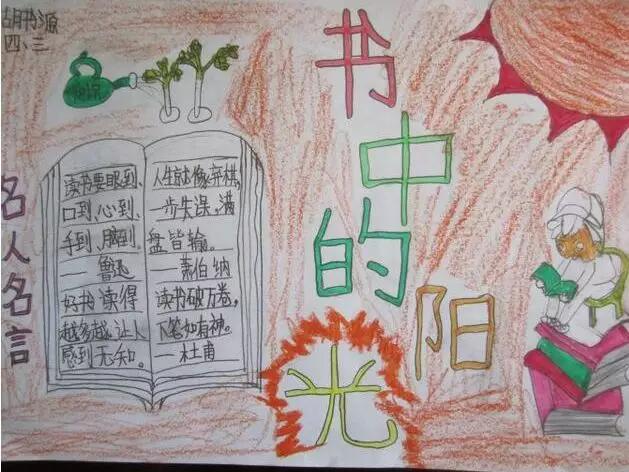 胡书源
四、三
书
中
的
阳
光
名人名言
读书要眼到、
口到、心到、
手到、脑到。
— 鲁迅
好书读得
越多越让人
感到无知。
人生就像弈棋,
一步失误,满
盘皆输。
— 萧伯纳
读书破万卷,
下笔如有神。
— 杜甫